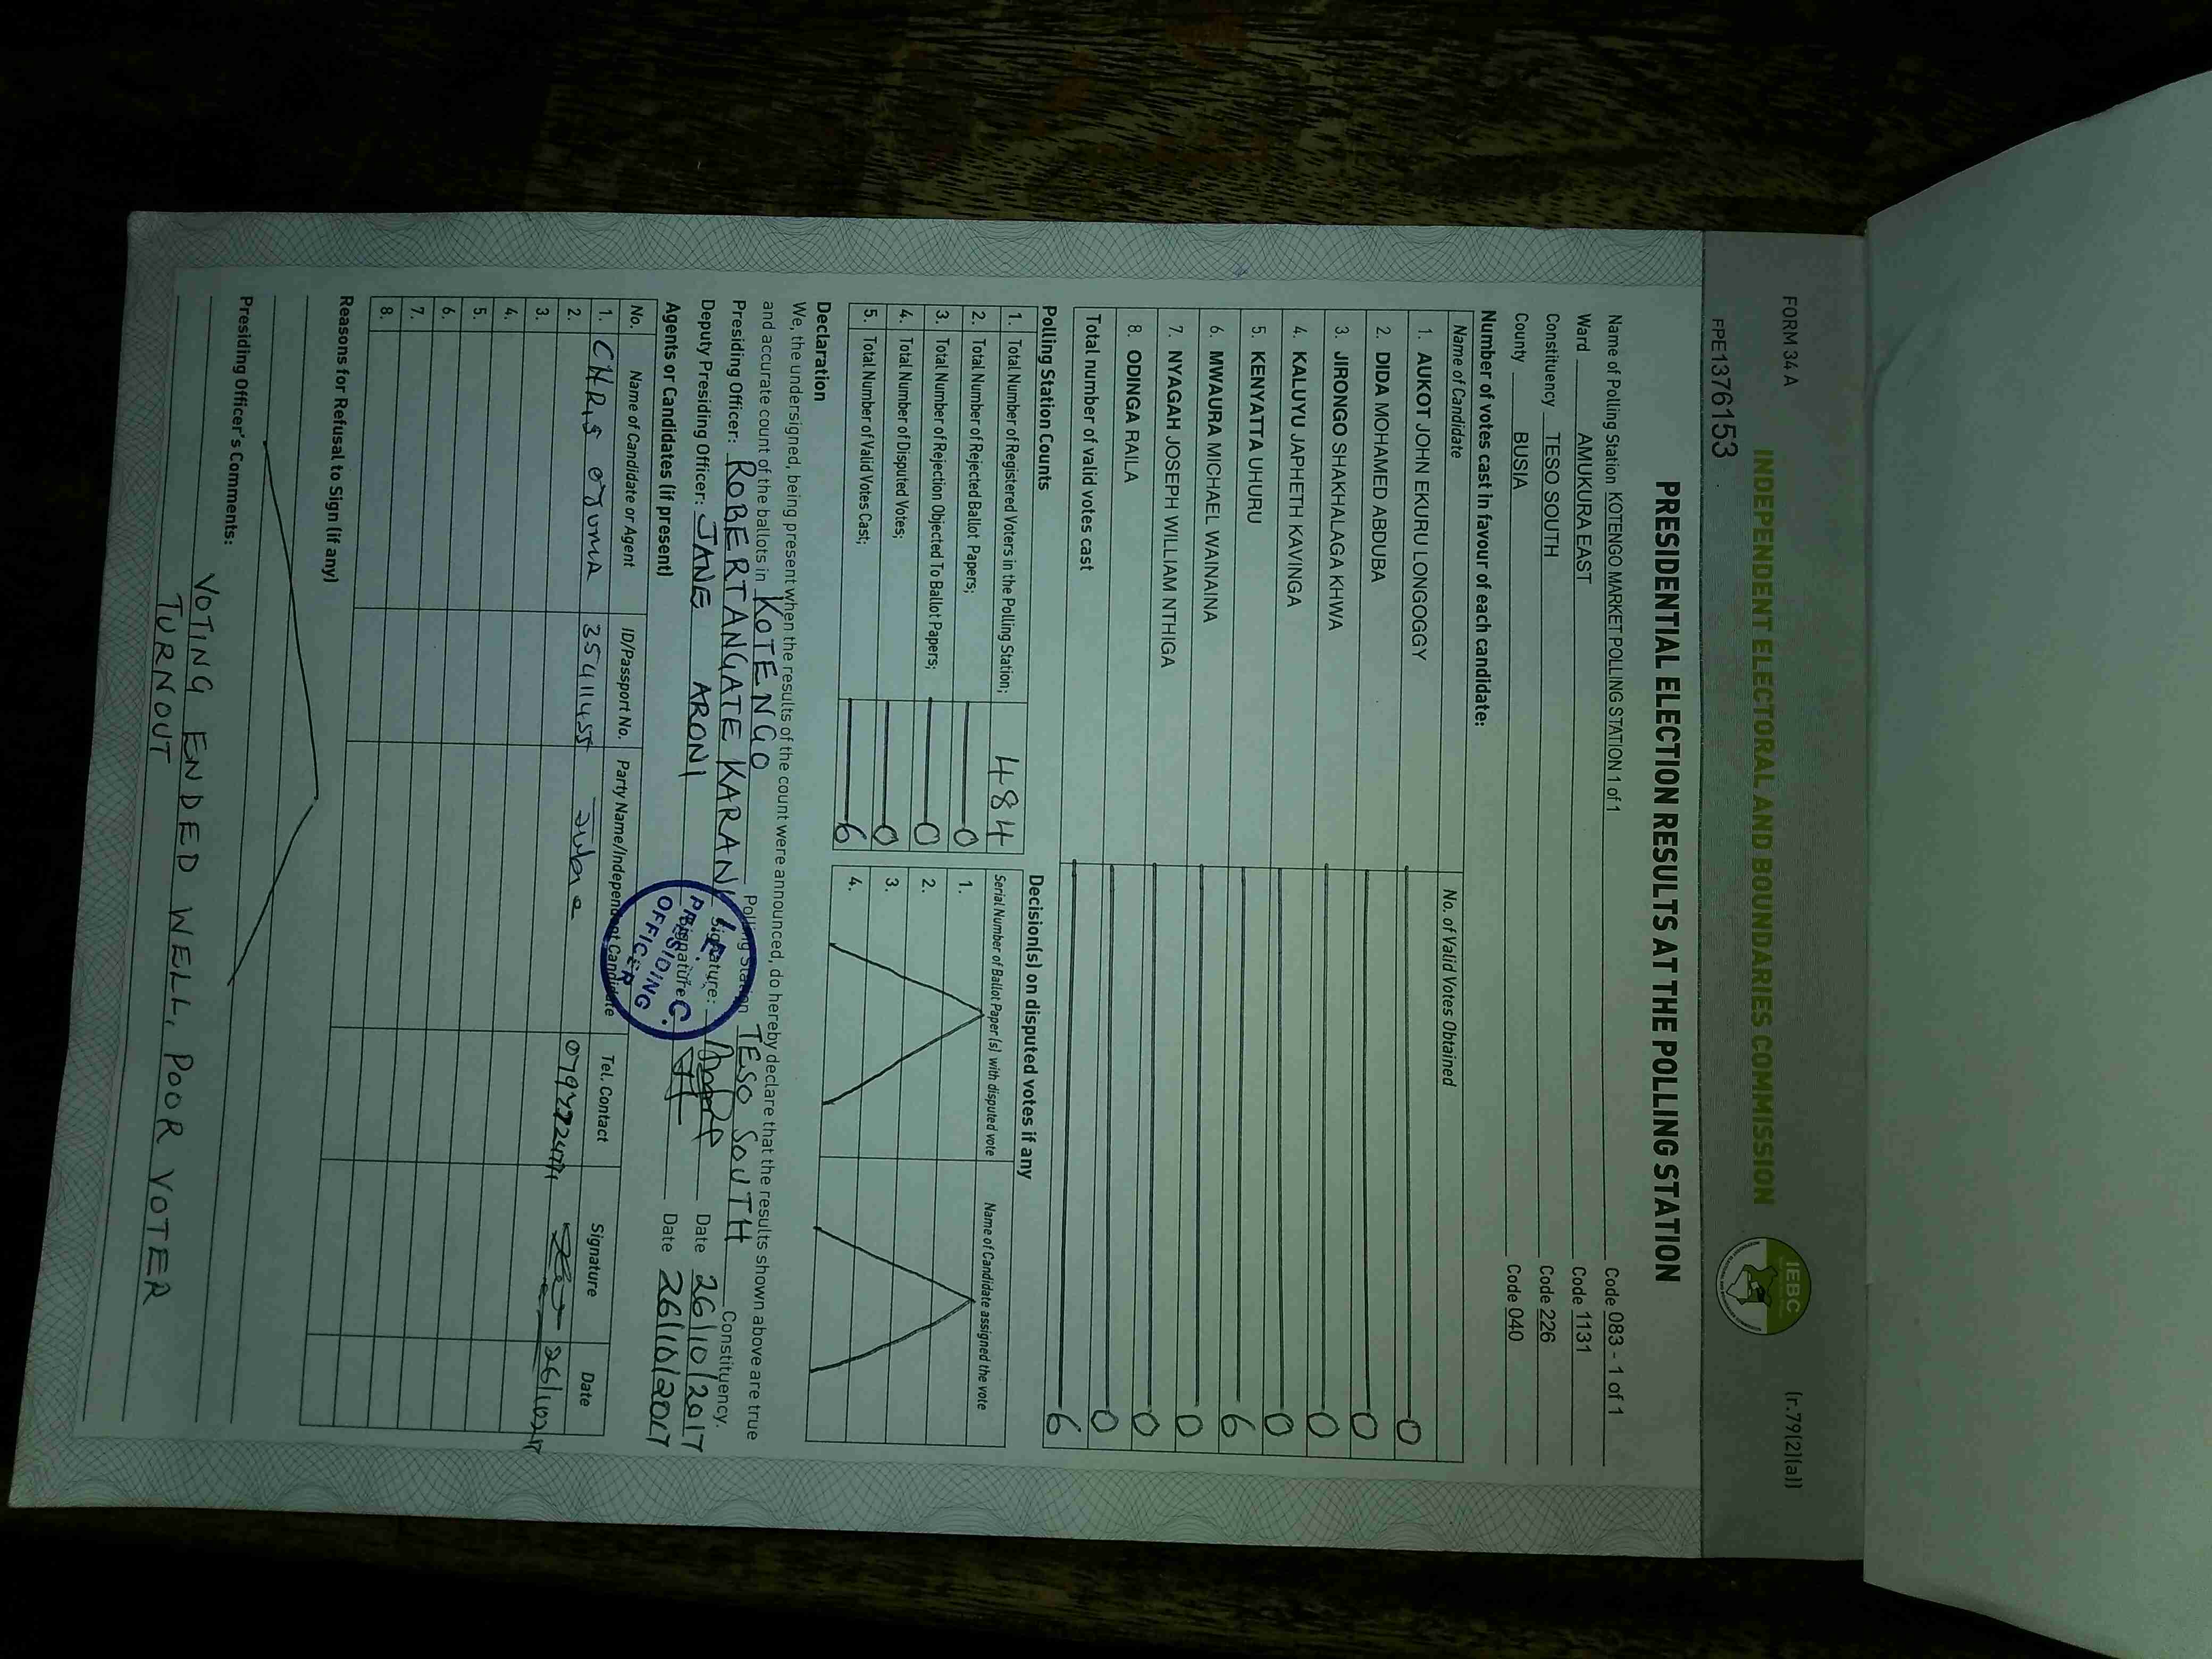 FORM 34 A
(r.79(2)(a))
INDEPENDENT ELECTORAL AND BOUNDARIES COMMISSION
IEBC
FPE1376153
PRESIDENTIAL ELECTION RESULTS AT THE POLLING STATION
Name of Polling Station KOTENGO MARKET POLLING STATION 1 of 1 Code 083 - 1 of 1
Ward AMUKURA EAST Code 1131
Constituency TESO SOUTH Code 226
County BUSIA Code 040
Number of votes cast in favour of each candidate:
Name of Candidate No. of Valid Votes Obtained
1. AUKOT JOHN EKURU LONGOGGY 0
2. DIDA MOHAMED ABDUBA 0
3. JIRONGO SHAKHALAGA KHWA 0
4. KALUYU JAPHETH KAVINGA 0
5. KENYATTA UHURU 6
6. MWAURA MICHAEL WAINAINA 0
7. NYAGAH JOSEPH WILLIAM NTHIGA 0
8. ODINGA RAILA 0
Total number of valid votes cast 6
Polling Station Counts
1. Total Number of Registered Voters in the Polling Station; 484
2. Total Number of Rejected Ballot Papers; 0
3. Total Number of Rejection Objected To Ballot Papers; 0
4. Total Number of Disputed Votes; 0
5. Total Number of Valid Votes Cast; 6
Decision(s) on disputed votes if any
Serial Number of Ballot Paper(s) with disputed vote Name of Candidate assigned the vote
1.
2.
3.
4.
Declaration
We, the undersigned, being present when the results of the count were announced, do hereby declare that the results shown above are true
and accurate count of the ballots in KOTENGO Polling Station TESO SOUTH Constituency.
Presiding Officer: ROBERT ANGATE KARANI Signature: Date 26/10/2017
Deputy Presiding Officer: JANE ARONI Signature Date 26/10/2017
PRESIDING
OFFICER
Agents or Candidates (if present)
No. Name of Candidate or Agent ID/Passport No. Party Name/Independent Candidate Tel. Contact Signature Date
1. CHRIS OJUMA 35411455 Jubi e
2.
3.
4.
5.
6.
7.
8.
Reasons for Refusal to Sign (if any)
Presiding Officer's Comments:
VOTING ENDED WELL, POOR VOTER
TURNOUT